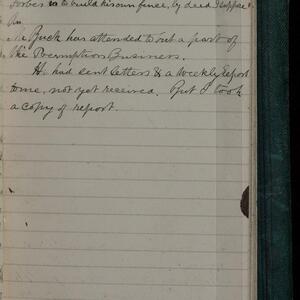 Forbes is to build his own fence, by deed I suppose
Mr Buck has attended to out a part of
the Preemption Business.
He had sent letters & a Weekly Report
to me, not yet received. But I took
a copy of report.